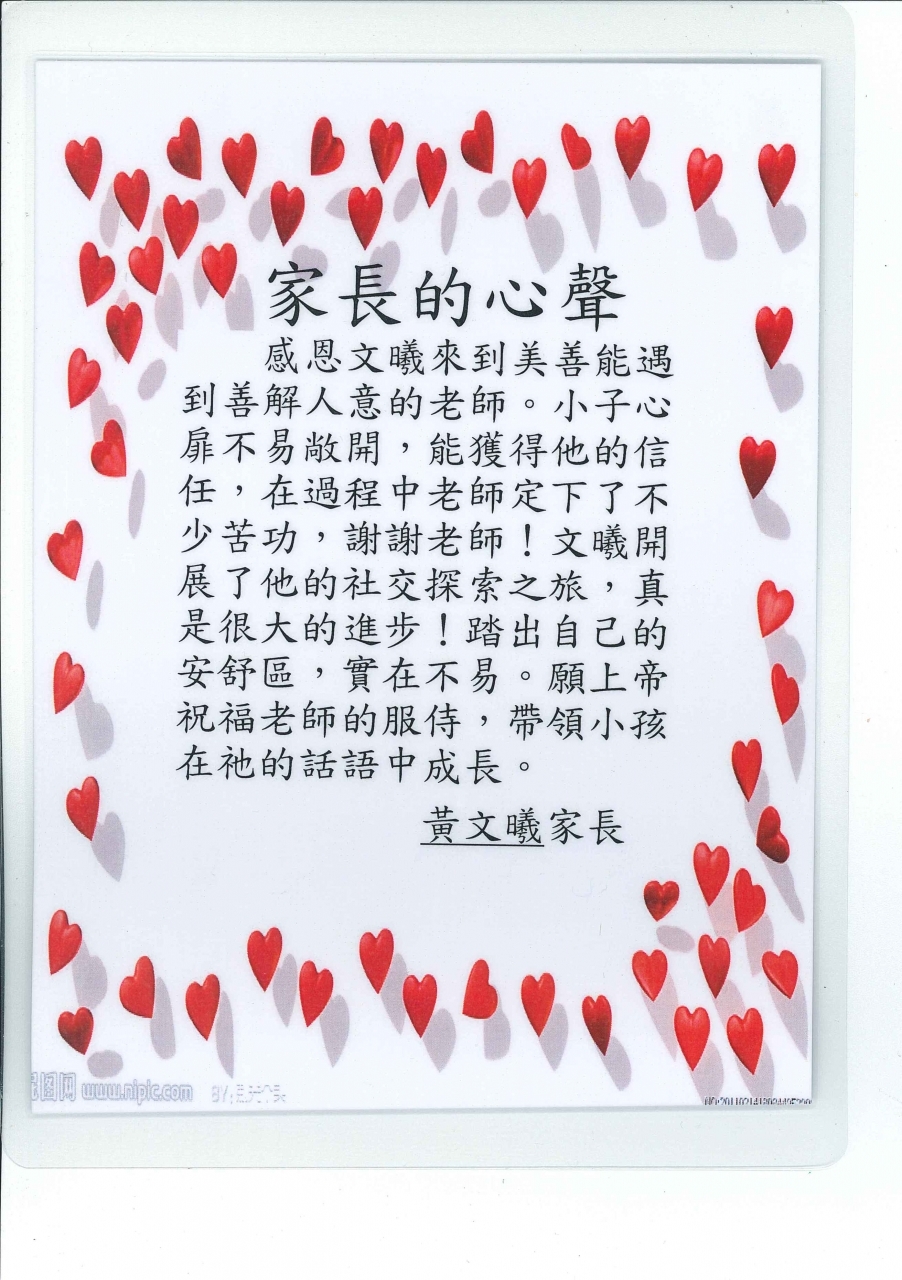 家長的心聲
感恩文曦來到美善能遇
到善解人意的老師。小子心
扉不易敞開，能獲得他的信
任，在過程中老師定下了不
少苦功，謝謝老師！文曦開
展了他的社交探索之旅，真
是很大的進步！踏出自己的
安舒區，實在不易。願上帝
祝福老師的服侍，帶領小孩
在祂的話語中成長。
黃文曦家長
昵图网 www.nipic.com